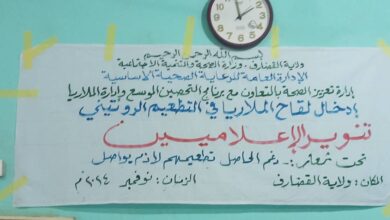 بسم الله الرحمن الرحيم
ولاية القضارف - وزارة الصحة والتنمية الاجتماعية
الإدارة العامة للرعاية الصحية الأساسية
إدارة تعزيز الصحة بالتعاون مع برنامج التحصين الموسع وإدارة الملاريا
إدخال لقاح الملاريا في التطعيم الروتيني
تنوير الإعلاميين
تحت شعار:- رغم الحاصل تطعيمهم لازم يواصل
المكان: ولاية القضارف الزمان: نوفمبر ٢٠٢٤م